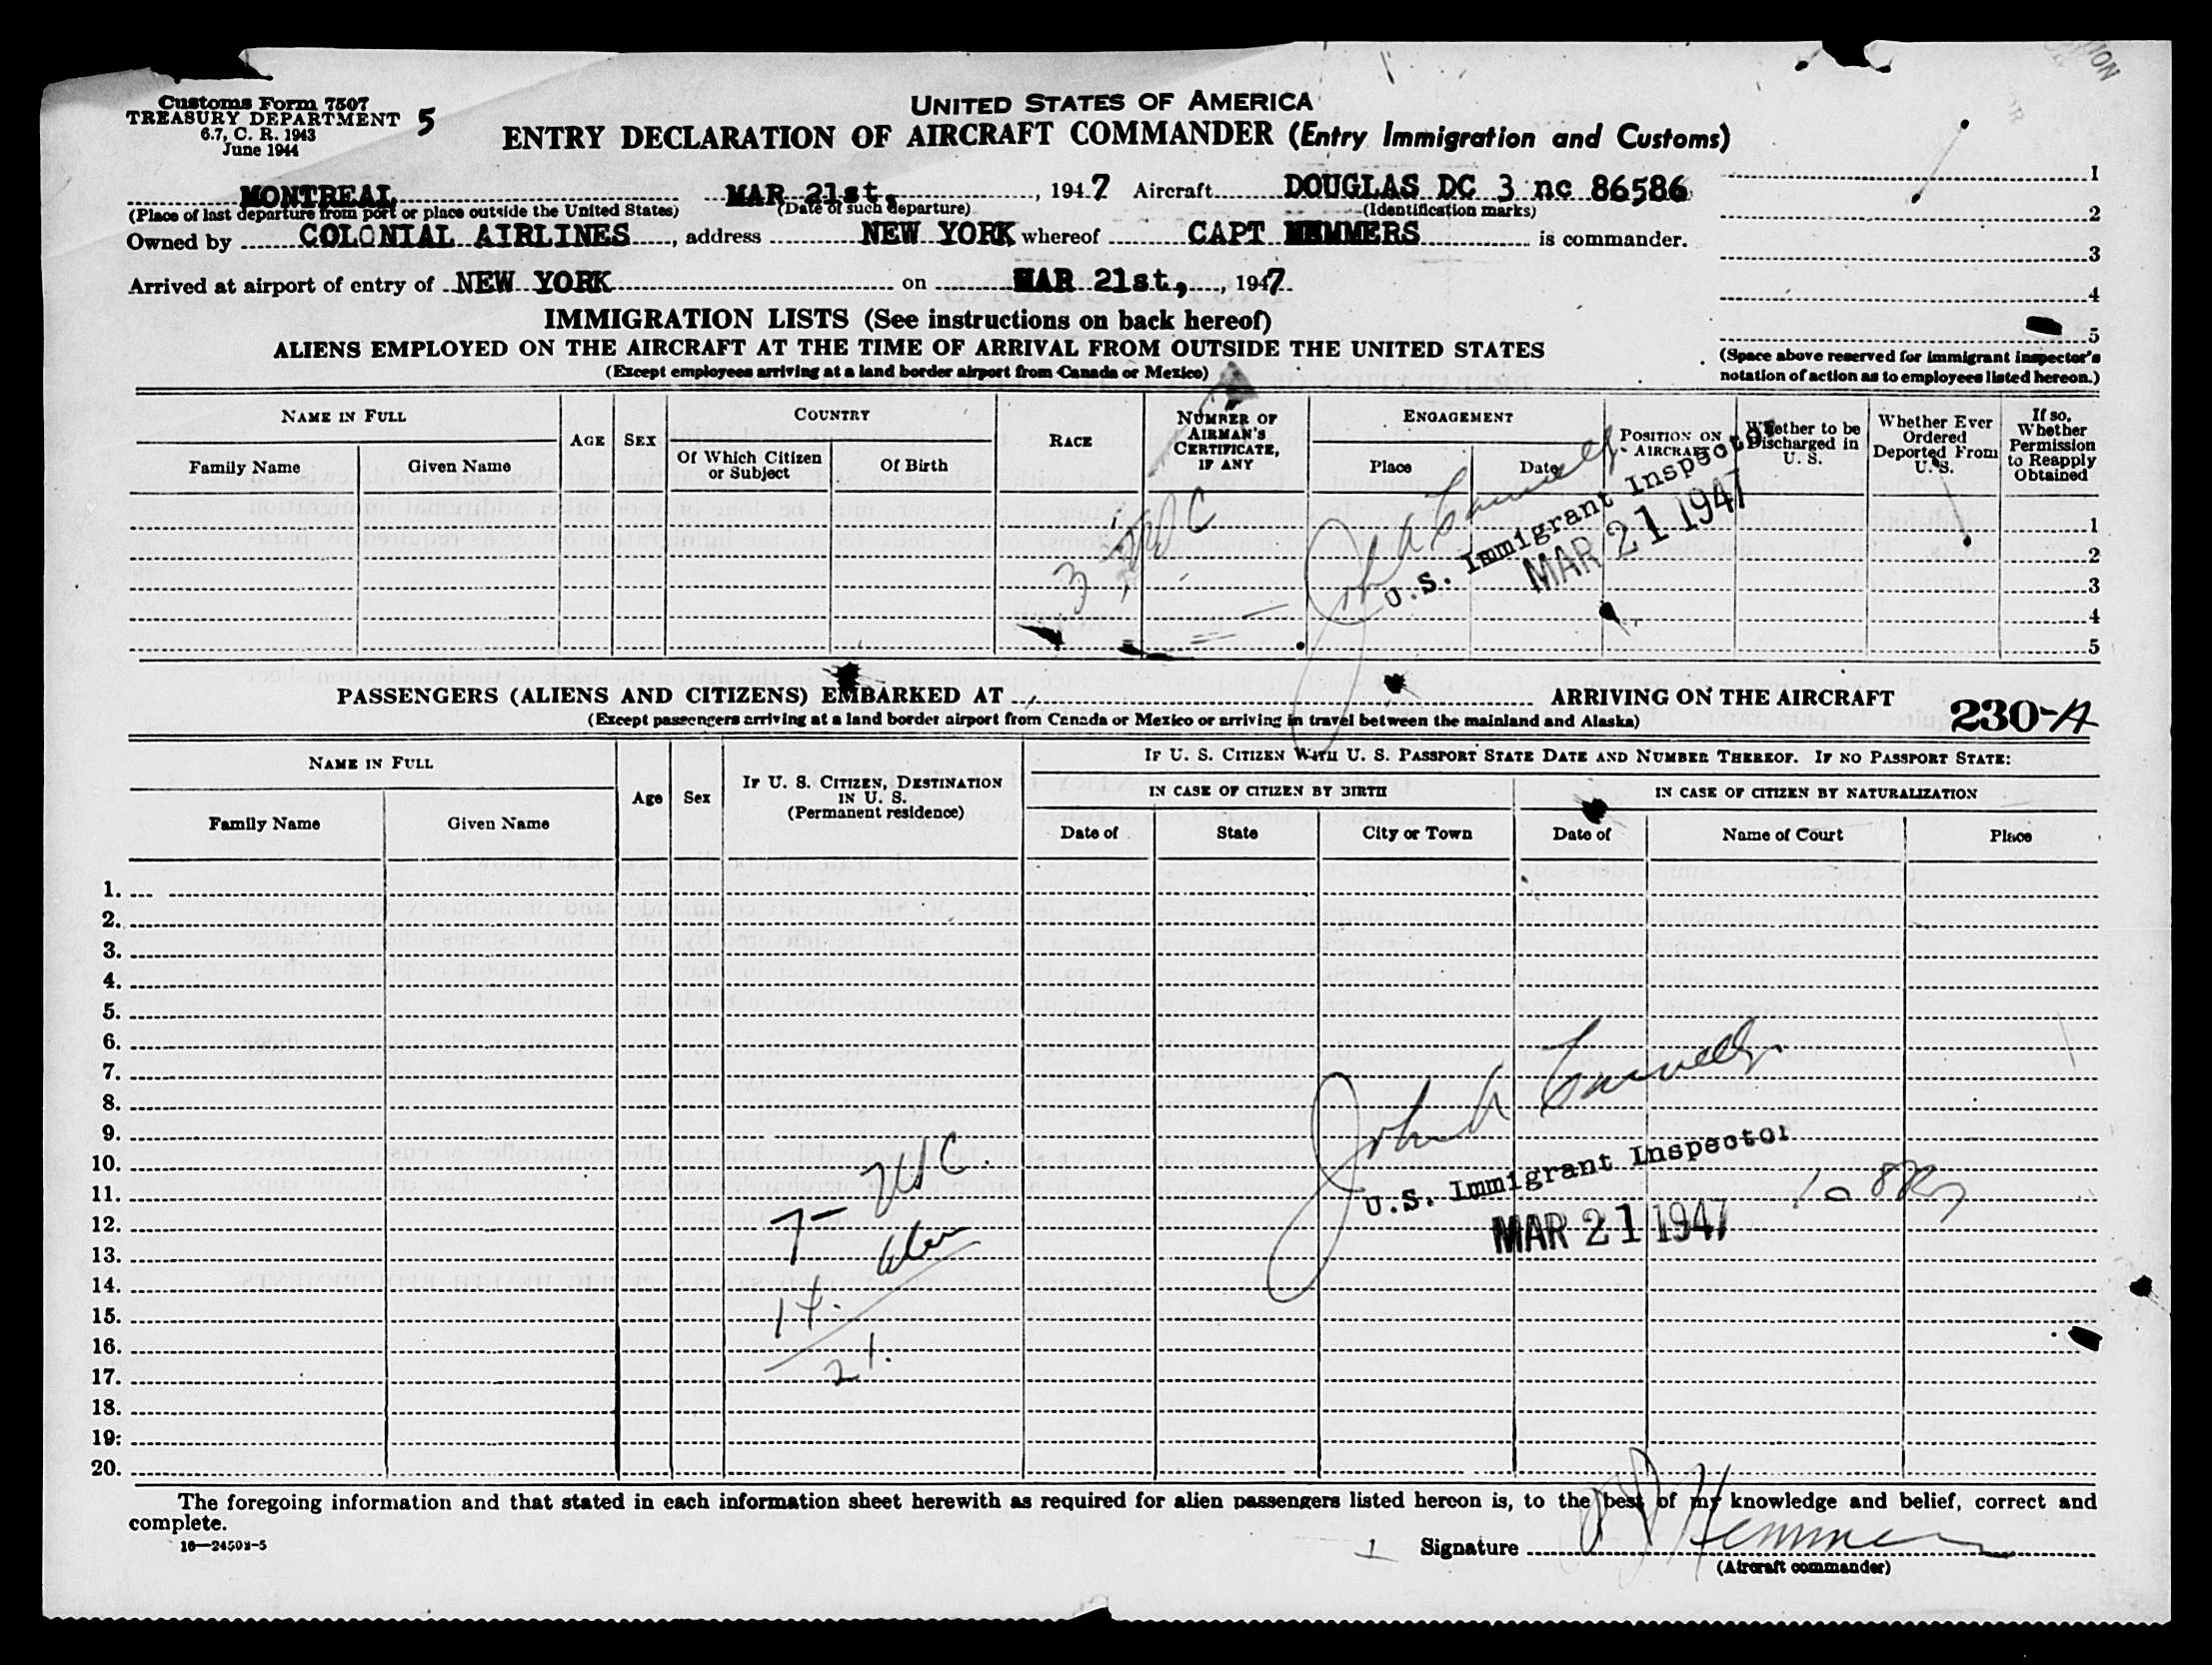 Customs Form 7507
TREASURY DEPARTMENT
6.7, C. R. 1943
June 1944
5
UNITED STATES OF AMERICA
ENTRY DECLARATION OF AIRCRAFT COMMANDER (Entry Immigration and Customs)
MONTREAL MAR 21st, 1947 Aircraft DOUGLAS DC 3 nc 86586
(Place of last departure from port or place outside the United States) (Date of such departure) (Identification marks)
Owned by COLONIAL AIRLINES, address NEW YORK whereof CAPT HEMMERS is commander.
Arrived at airport of entry of NEW YORK on MAR 21st, 1947
1
2
3
4
5
(Space above reserved for immigrant inspector's
notation of action as to employees listed hereon.)
IMMIGRATION LISTS (See instructions on back hereof)
ALIENS EMPLOYED ON THE AIRCRAFT AT THE TIME OF ARRIVAL FROM OUTSIDE THE UNITED STATES
(Except employees arriving at a land border airport from Canada or Mexico)
NAME IN FULL
Family Name
Given Name
AGE
SEX
COUNTRY
Of Which Citizen
or Subject
Of Birth
RACE
NUMBER OF
AIRMAN'S
CERTIFICATE,
IF ANY
ENGAGEMENT
Place
Date
POSITION ON
AIRCRAFT
Whether to be
Discharged in
U. S.
Whether Ever
Ordered
Deported From
U. S.
If so,
Whether
Permission
to Reapply
Obtained
1
2
3
4
5
3
U.S. Immigrant Inspector
MAR 21 1947
PASSENGERS (ALIENS AND CITIZENS) EMBARKED AT ARRIVING ON THE AIRCRAFT
(Except passengers arriving at a land border airport from Canada or Mexico or arriving in travel between the mainland and Alaska)
230-A
NAME IN FULL
Family Name
Given Name
Age
Sex
IF U. S. CITIZEN, DESTINATION
IN U. S.
(Permanent residence)
IF U. S. CITIZEN WITH U. S. PASSPORT STATE DATE AND NUMBER THEREOF. IF NO PASSPORT STATE:
IN CASE OF CITIZEN BY BIRTH
IN CASE OF CITIZEN BY NATURALIZATION
Date of
State
City or Town
Date of
Name of Court
Place
1.
2.
3.
4.
5.
6.
7.
8.
9.
10.
11.
12.
13.
14.
15.
16.
17.
18.
19.
20.
7 - USC.
14. alien
21.
John A
U.S. Immigrant Inspector
MAR 21 1947
The foregoing information and that stated in each information sheet herewith as required for alien passengers listed hereon is, to the best of my knowledge and belief, correct and
complete.
16—24503-5
1
Signature Hemmer
(Aircraft commander)